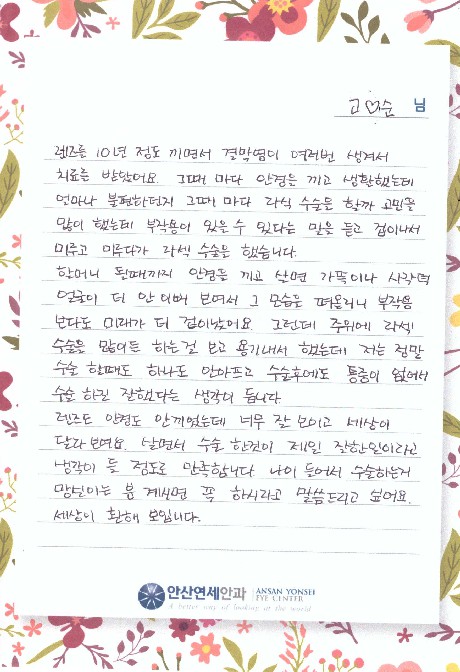 고♡순 님
렌즈를 10년 정도 끼면서 결막염이 여러번 생겨서
치료를 받았어요. 그때 마다 안경을 끼고 생활했는데
얼마나 불편하던지 그때 마다 라식 수술을 할까 고민을
많이 했는데 부작용이 있을 수 있다는 말을 듣고 겁이나서
미루고 미루다가 라섹 수술을 했습니다.
할머니 될때까지 안경을 끼고 살면 가뜩이나 사각턱
얼굴이 더 안 이뻐 보여서 그 모습을 떠올리니 부작용
보다도 미래가 더 겁이났어요. 그런데 주위에 라섹
수술을 많이들 하는걸 보고 용기내서 했는데 저는 정말
수술 할때도 하나도 안아프고 수술후에도 통증이 없어서
수술 하길 잘했다는 생각이 듭니다
렌즈도 안경도 안끼었는데 너무 잘 보이고 세상이
달라보여요. 살면서 수술 한것이 제일 잘한일이라고
생각이 들 정도로 만족합니다 나이 들어서 수술하는거
망설이는 분 계시면 꼭 하시라고 말씀드리고 싶어요.
세상이 환해 보입니다.
안산연세안과 ANSAN YONSEI
EYE CENTER
A better way of looking at the world